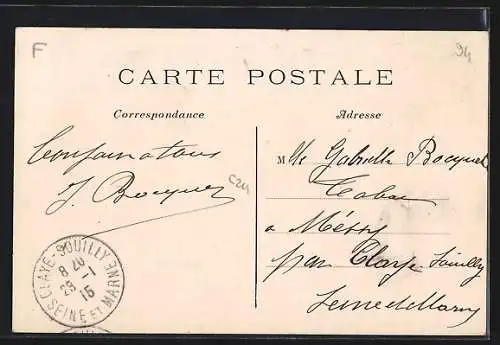 F
94
CARTE POSTALE
Correspondance
Adresse
Mlle Gabrielle Bocquet
Tabac
à Messy
par Claye Souilly
Seine et Marne
J. Bocquet
C24
CLAYE-SOUILLY
8 20
29 -1
15
SEINE ET MARNE